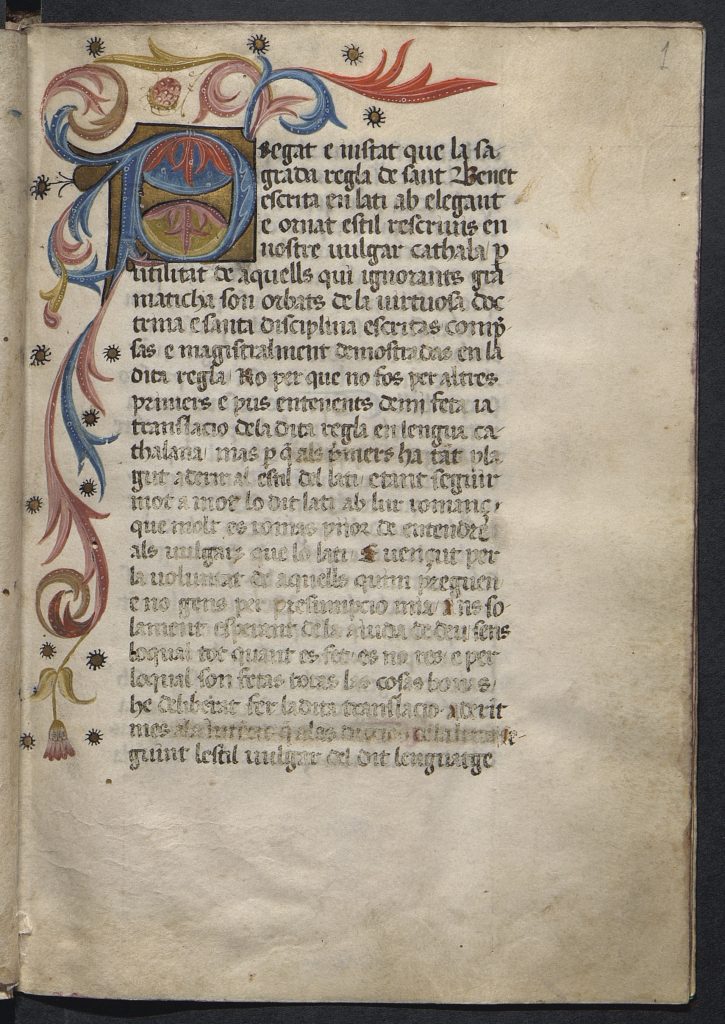 1
Pregat e instat que la sa
grada regla de sant Benet
escrita en lati ab elegant
e ornat estil rescrivis en
nostre vulgar cathala p
utilitat de aquells qui ignorants gra
maticha son orbats de la virtuosa doc
trina e santa disciplina escritas comp̄
sas e magistralment demostradas en la
dita regla No per que no fos per altres
primers e pus entenents de mi feta ja
translacio dela dita regla en lengua ca
thalana mas p q̄ als primers ha tāt pla
gut aderir al estil del lati e tant seguir
mot a mot lo dit lati ab lur romanç
que molt es romās pijor de entendre
als vulgars que lo lati E vençut per
la voluntat de aquells quim preguen
e no gens per presumpcio mia Ans so
lament esperant de la ajuda de deu sens
loqual tot quant es fet es no res e per
loqual son fetas totas las cosas bonas
he deliberat fer la dita translacio aderit
mes ala q̄ alas
guint lestil vulgar del dit lenguatge